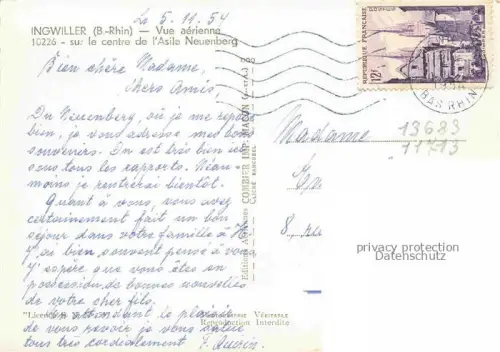 Le 5.11.54
INGWILLER (B.-Rhin) — Vue aérienne
10226 - sur le centre de l'Asile Neuenberg
Bien chère Madame,
chers Amis,
Du Neuenberg, où je me repose
bien, je vous adresse mes bons
souvenirs. On est très bien ici
sous tous les rapports. Néan-
moins je rentrerai bientôt.
Quant à vous, vous avez
certainement fait un bon
séjour dans votre famille à
J'ai bien souvent pensé à vous.
J'espère que vous êtes en
possession de bonnes nouvelles
de votre cher fils.
En attendant le plaisir
de vous revoir je vous envoie
tous très cordialement
Editions Aériennes COMBIER IMP. MACON
CLICHÉ RANCUREL
Véritable
Reproduction Interdite
REPUBLIQUE FRANÇAISE
12F
BAS RHIN
Madame
13683
11713
8, rue
privacy protection
Datenschutz